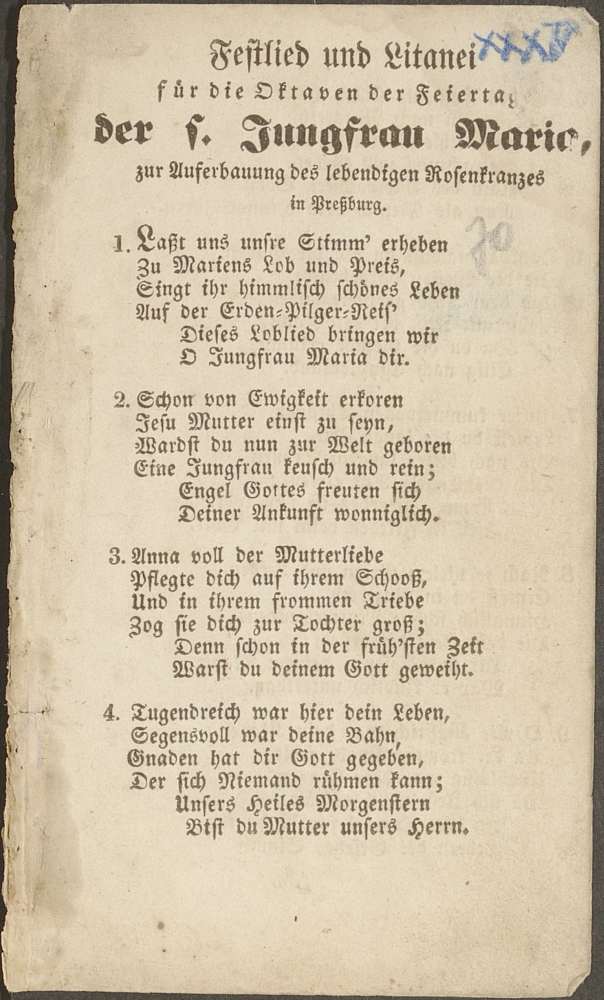 Festlied und Litanei
für die Oktaven der Feiertag
der s. Jungfrau Maria,
zur Auferbauung des lebendigen Rosenkranzes
in Preßburg.
70
1. Laßt uns unsre Stimm' erheben
Zu Mariens Lob und Preis,
Singt ihr himmlisch schönes Leben
Auf der Erden-Pilger-Reis'
Dieses Loblied bringen wir
O Jungfrau Maria dir.
2. Schon von Ewigkeit erkoren
Jesu Mutter einst zu seyn,
Wardst du nun zur Welt geboren
Eine Jungfrau keusch und rein;
Engel Gottes freuten sich
Deiner Ankunft wonniglich.
3. Anna voll der Mutterliebe
Pflegte dich auf ihrem Schooß,
Und in ihrem frommen Triebe
Zog sie dich zur Tochter groß;
Denn schon in der früh'sten Zeit
Warst du deinem Gott geweiht.
4. Tugendreich war hier dein Leben,
Segensvoll war deine Bahn,
Gnaden hat dir Gott gegeben,
Der sich Niemand rühmen kann;
Unsers Heiles Morgenstern
Bist du Mutter unsers Herrn.